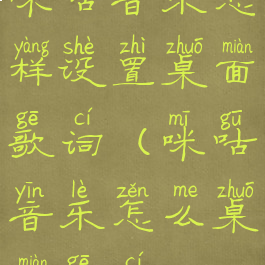 yàng shè zhì zhuō miàn
样设置桌面
gē cí mī gū
歌词（咪咕
yīn lè zěn me zhuō
音乐怎么桌
miàn gē cí